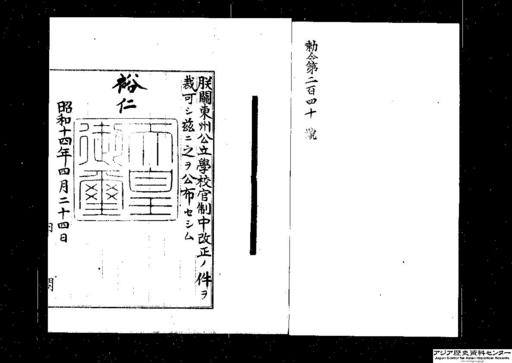 勅令第二百四十號
朕關東州公立學校官制中改正ノ件ヲ
裁可シ茲ニ之ヲ公布セシム
裕仁
天皇
御璽
昭和十四年四月二十四日
アジア歴史資料センター
Japan Center for Asian Historical Records